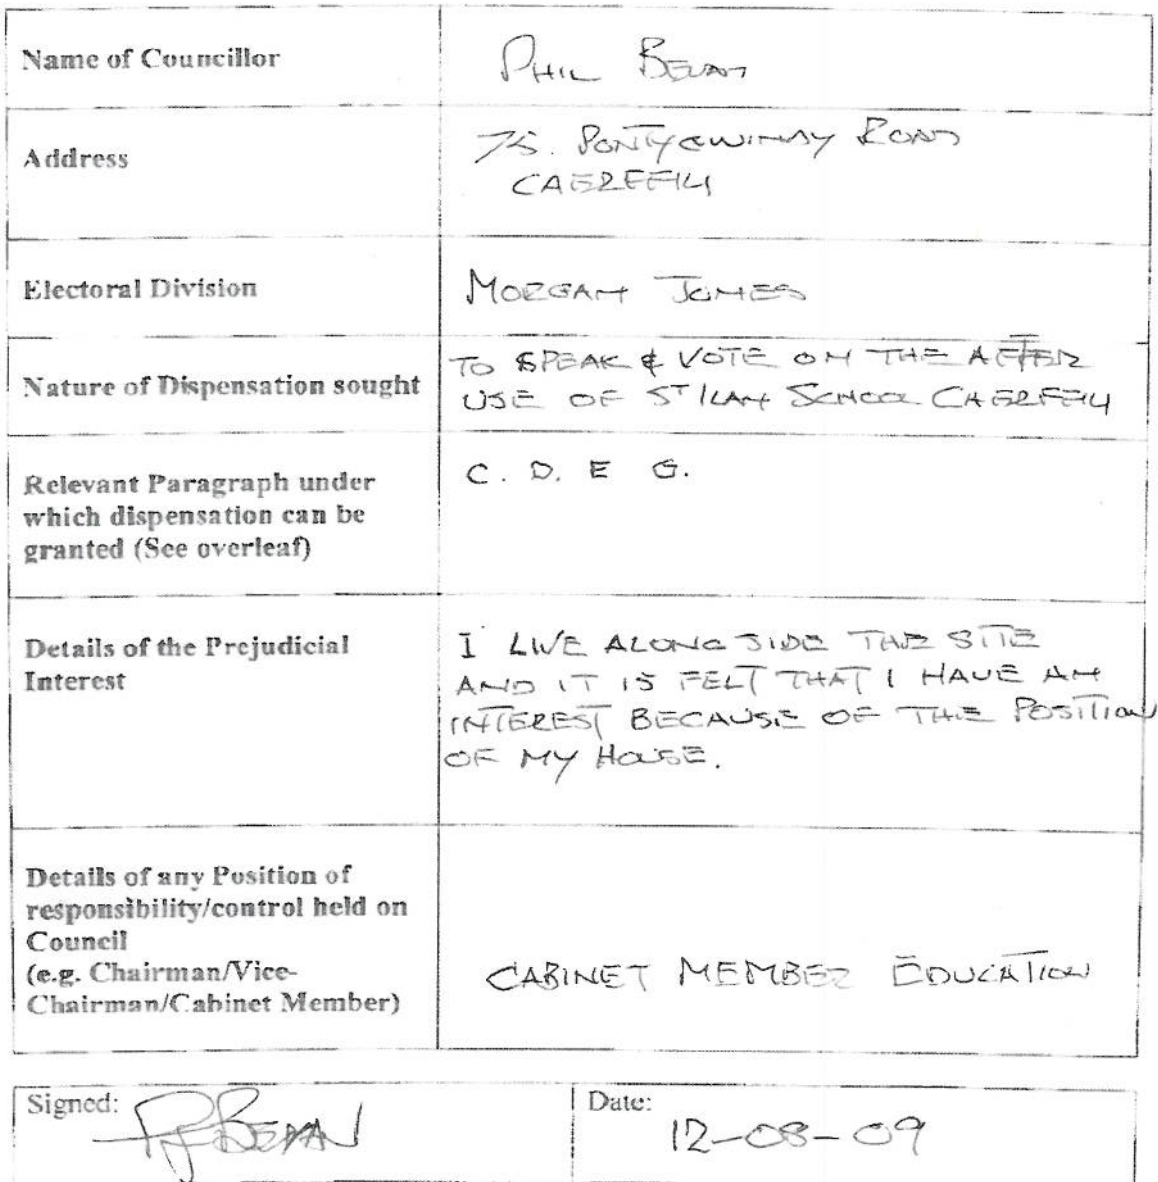 Name of Councillor
PHIL BEVAN
Address
75. PONTYGWINDY ROAD
CAERFFILI
Electoral Division
MORGAN JONES
Nature of Dispensation sought
TO SPEAK & VOTE ON THE AFTER
USE OF ST ILAN SCHOOL CAERFFILI
Relevant Paragraph under
which dispensation can be
granted (See overleaf)
C. D. E G.
Details of the Prejudicial
Interest
I LIVE ALONG SIDE THE SITE
AND IT IS FELT THAT I HAVE AN
INTEREST BECAUSE OF THE POSITION
OF MY HOUSE.
Details of any Position of
responsibility/control held on
Council
(e.g. Chairman/Vice-
Chairman/Cabinet Member)
CABINET MEMBER EDUCATION
Signed:
PJ BEVAN
Date:
12-08-09